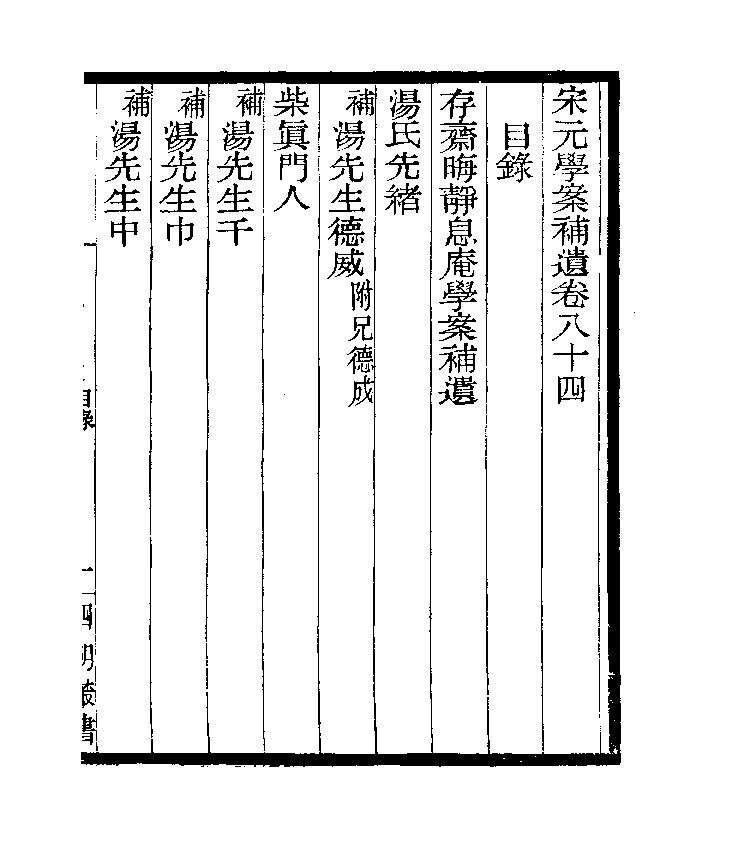 宋元學案補遺卷八十四
目錄
存齋晦靜息庵學案補遺
湯氏先緒
補湯先生德威附兄德成
柴眞門人
補湯先生千
補湯先生巾
補湯先生中
目錄
四明叢書